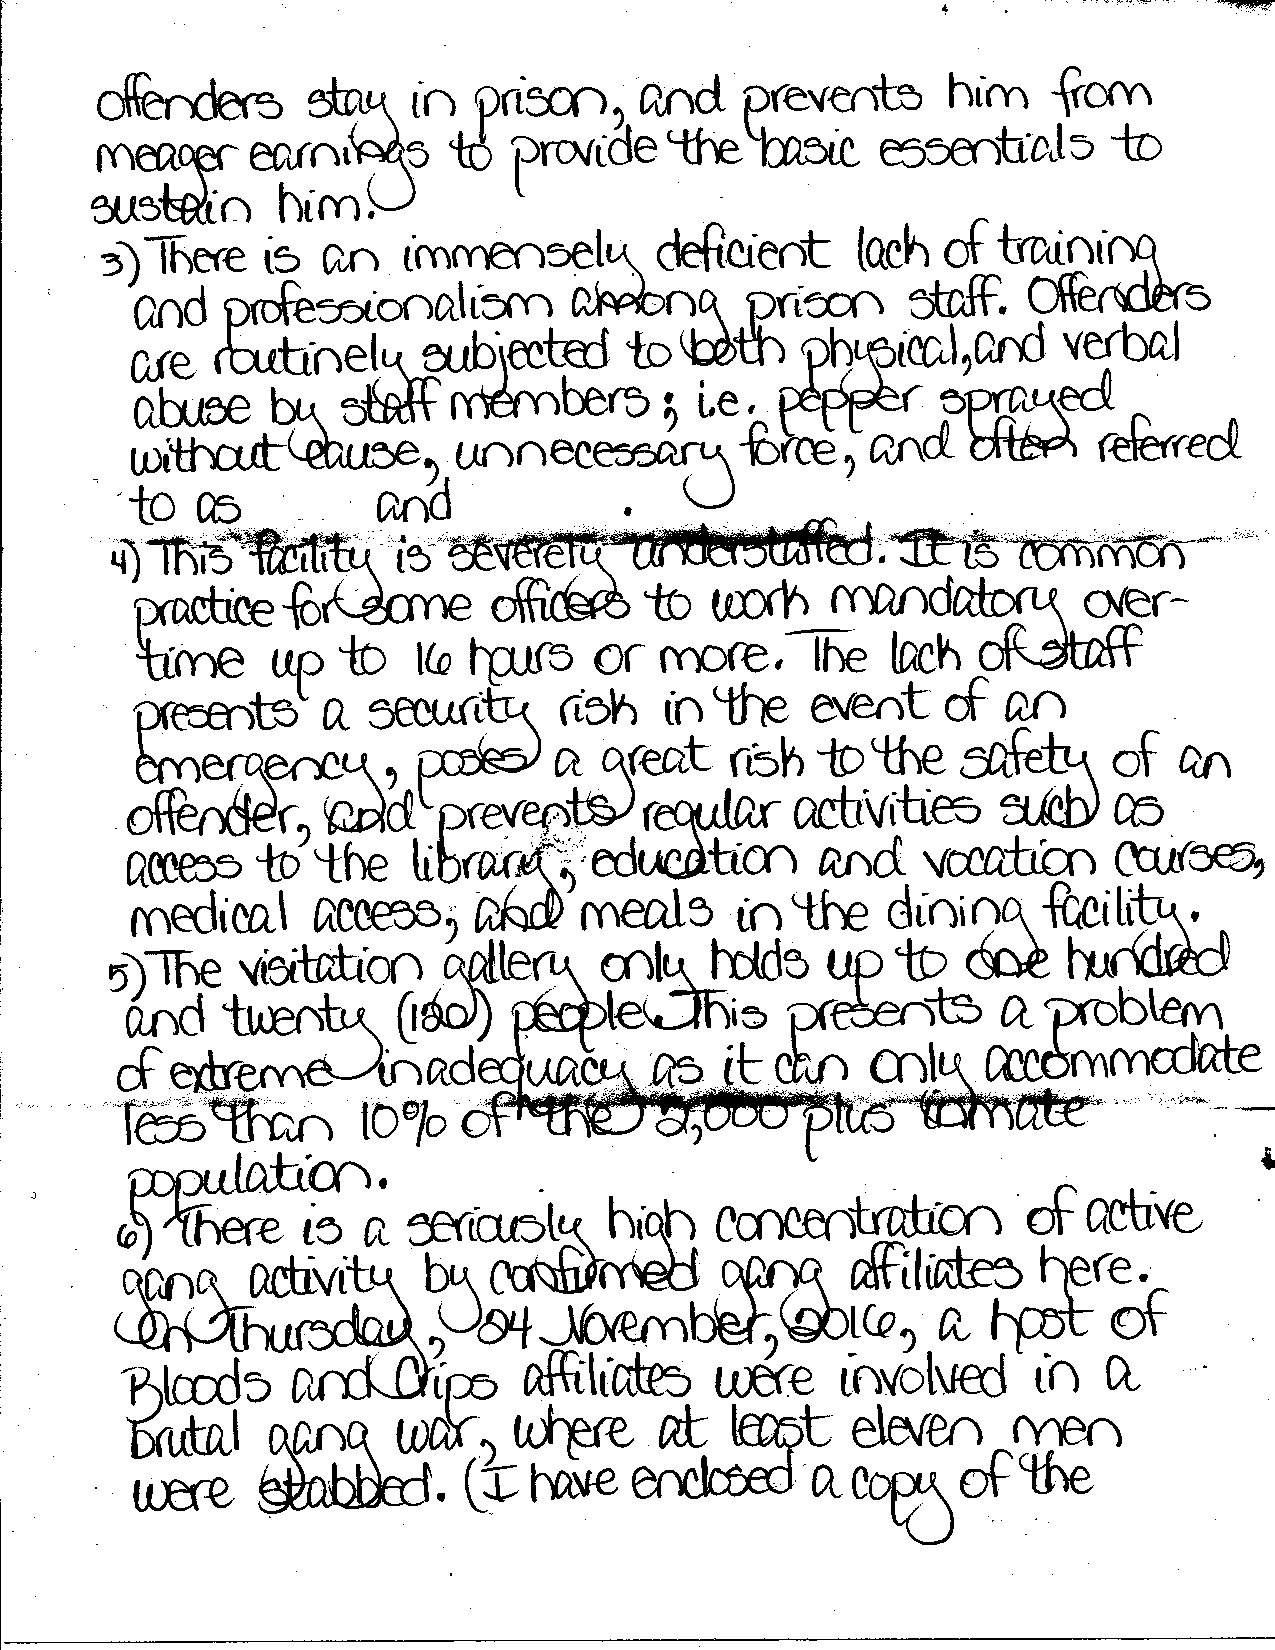 offenders stay in prison, and prevents him from
meager earnings to provide the basic essentials to
sustain him.
3) There is an immensely deficient lack of training
and professionalism among prison staff. Offenders
are routinely subjected to both physical, and verbal
abuse by staff members; i.e. pepper sprayed
without cause, unnecessary force, and often referred
to as and .
4) This facility is severely understaffed. It is common
practice for some officers to work mandatory over-
time up to 16 hours or more. The lack of staff
presents a security risk in the event of an
emergency, poses a great risk to the safety of an
offender, and prevents regular activities such as
access to the library, education and vocation courses,
medical access, and meals in the dining facility.
5) The visitation gallery only holds up to one hundred
and twenty (120) people. This presents a problem
of extreme inadequacy as it can only accommodate
less than 10% of the 2,000 plus inmate
population.
6) There is a seriously high concentration of active
gang activity by confirmed gang affiliates here.
On Thursday, 24 November, 2016, a host of
Bloods and Crips affiliates were involved in a
brutal gang war, where at least eleven men
were stabbed. (I have enclosed a copy of the